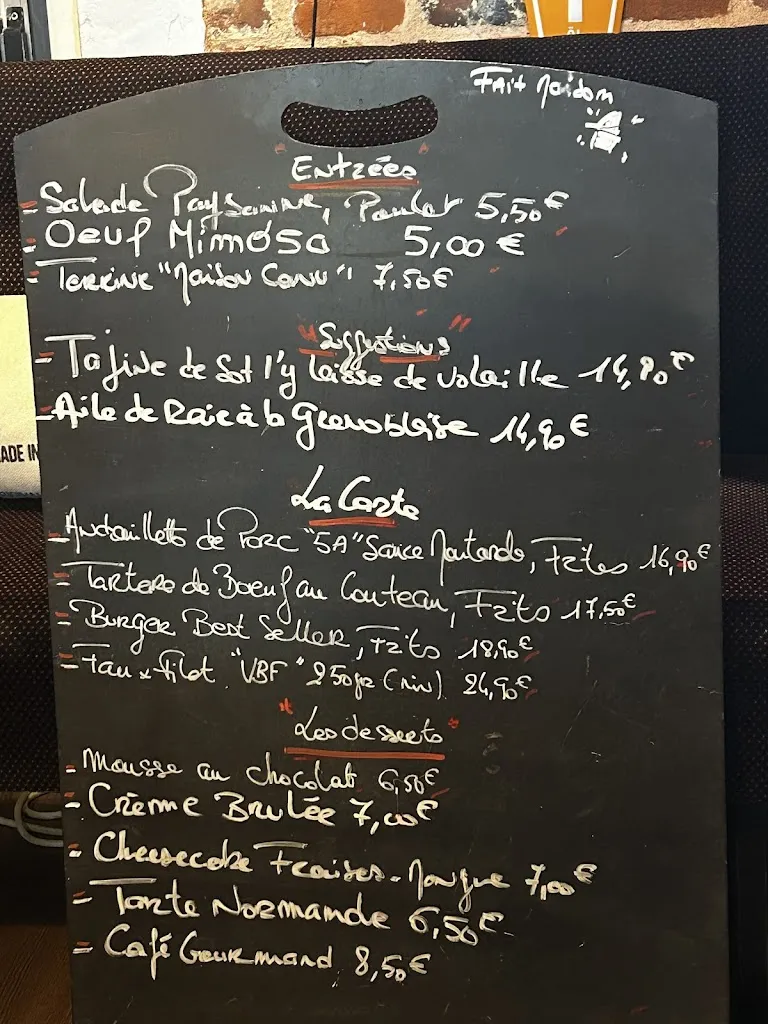 Fait Maison
Entrées
- Salade Paysanne, Poulet 5,50€
- Oeuf Mimosa 5,00 €
- Terrine "Maison Conu" 7,50€
"Suggestions"
- Tajine de Sot l'y laisse de volaille 14,80€
- Aile de Raie à la Grenobloise 14,90€
La Carte
- Andouillette de Porc "5A" Sauce Moutarde, Frites 16,90€
- Tartare de Boeuf au Couteau, Frites 17,50€
- Burger Best Seller, Frites 18,90€
- Faux Filet "VBF" 250gr (min) 24,90€
" Les desserts "
- Mousse au chocolat 6,50€
- Crème Brulée 7,00€
- Cheesecake Fraises-Mangue 7,00€
- Tarte Normande 6,50€
- Café Gourmand 8,50€
ADE IN